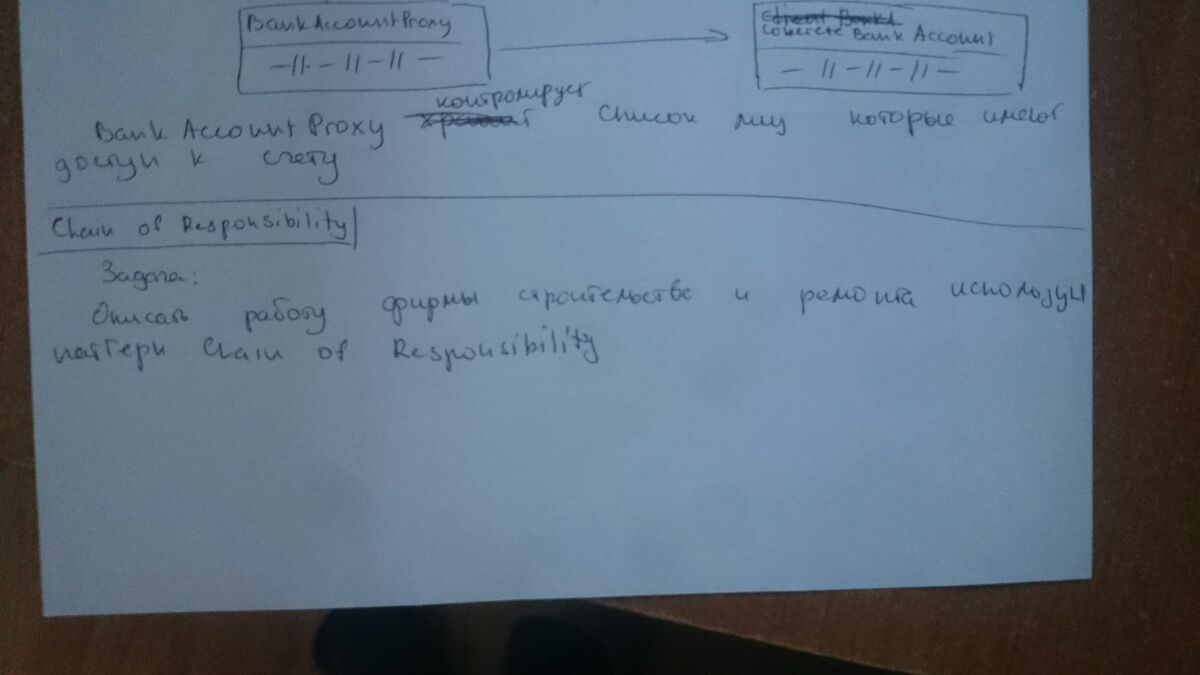 BankAccountProxy
Concrete Bank Account
-||-||-||-
- ||-||-||-
контролирует
Bank Account Proxy список лиц которые имеют
доступ к счету
Chain of Responsibility
Задача:
Описать работу фирмы строительстве и ремонта используя
паттерн Chain of Responsibility